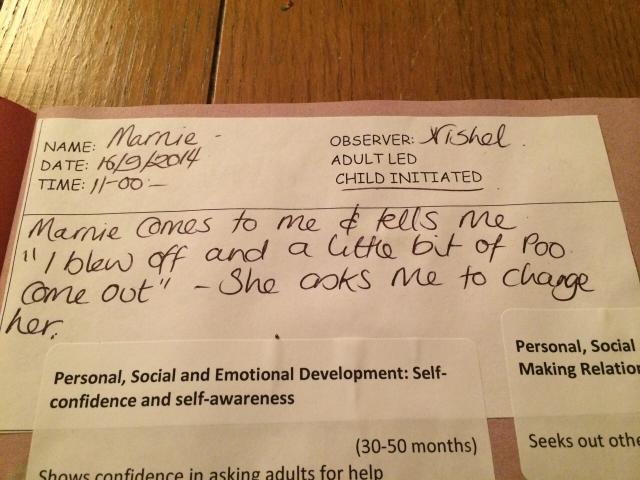 NAME: Marnie -
OBSERVER: Krishel.
DATE: 16/9/2014
ADULT LED
TIME: 11-00 -
CHILD INITIATED
Marnie comes to me & tells me
"I blew off and a little bit of Poo
come out" - She asks me to change
her.
Personal, Social and Emotional Development: Self-
confidence and self-awareness
(30-50 months)
Shows confidence in asking adults for help
Personal, Social
Making Relation
Seeks out othe